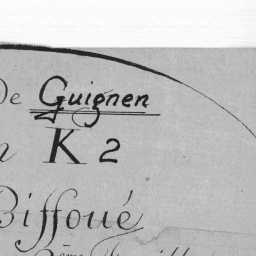 De Guignen
K 2
Biffoué